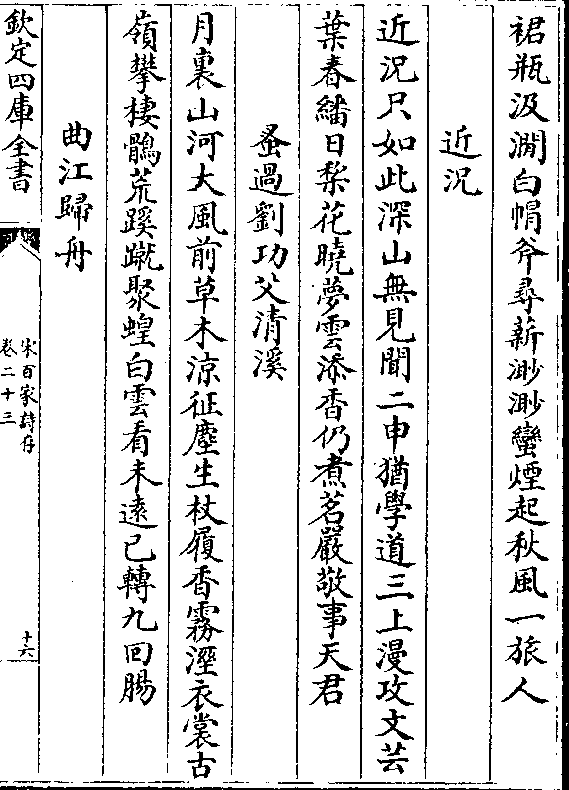 裙瓶汲澗白帽斧尋薪渺渺蠻煙起秋風一旅人
近況
近況只如此深山無見聞二申猶學道三上漫攻文芸
葉春繙日梨花曉夢雲添香仍煮茗嚴敬事天君
蚤過劉功父清溪
月裏山河大風前草木涼征塵生杖履香霧溼衣裳古
嶺攀棲鶻荒蹊蹴聚蝗白雲看未遠已轉九回腸
曲江歸舟
欽定四庫全書
宋百家詩存
卷二十三
十六